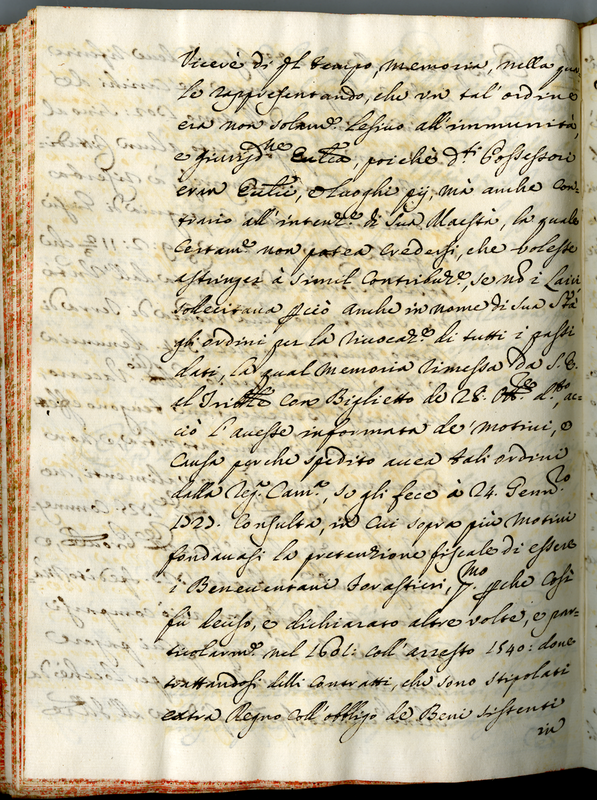 Vicerè di ql tempo, memoria, nella qua=
le rappresentando, che un tal' ordine
era non solamte. lesivo all'immunità,
e giurisdne. Ecclca, poiche dti. Possessori
eran Ecclci, e luoghi pij, mà anche con=
trario all'intenze. di Sua Maestà, la quale
certamte. non potea credersi, che volesse
astringer à simil Contribuze., se nò i Laici
sollecitava pciò anche in nome di Sua Stà
gli ordini per la rivocaze. di tutti i passi
dati, la qual Memoria rimessa da S. E.
al Trible con Biglietto de 28. Ottbre do., ac=
ciò l'avesse informata de motivi, e
causa perche spedito avea tali ordini
dalla Rega. Cama., se gli fece à 24. Gennro.
1723. Consulta, in cui sopra più Motivi
fondavasi la pretenzione fiscale di essere
i Beneventani forastieri, pmo. pche così
fù deciso, e dichiarato altre volte, e par=
ticolarmte. nel 1601: coll'arresto 1540: dove
trattandosi delli contratti, che sono stipolati
extra Regno coll'obbligo de Beni sistenti
in